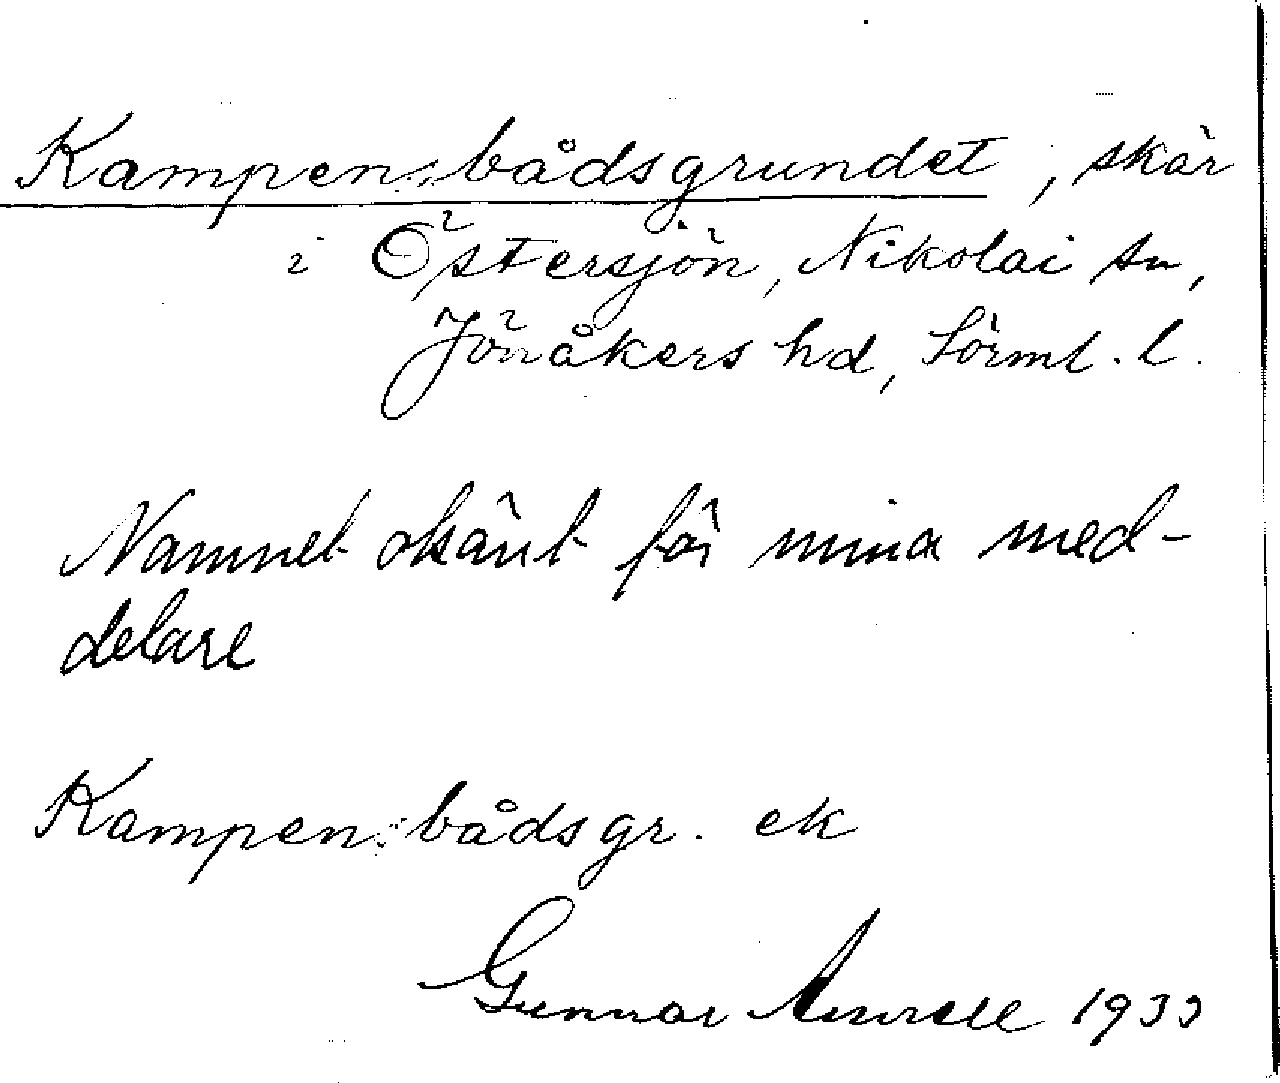 Kampen bådsgrundet, skär
i Östersjön, Nikolai sn,
Jönåkers hd, Sörml. l.
Namnet okänt för mina med-
delare
Kampen bådsgr. ek
Gunnar 1933